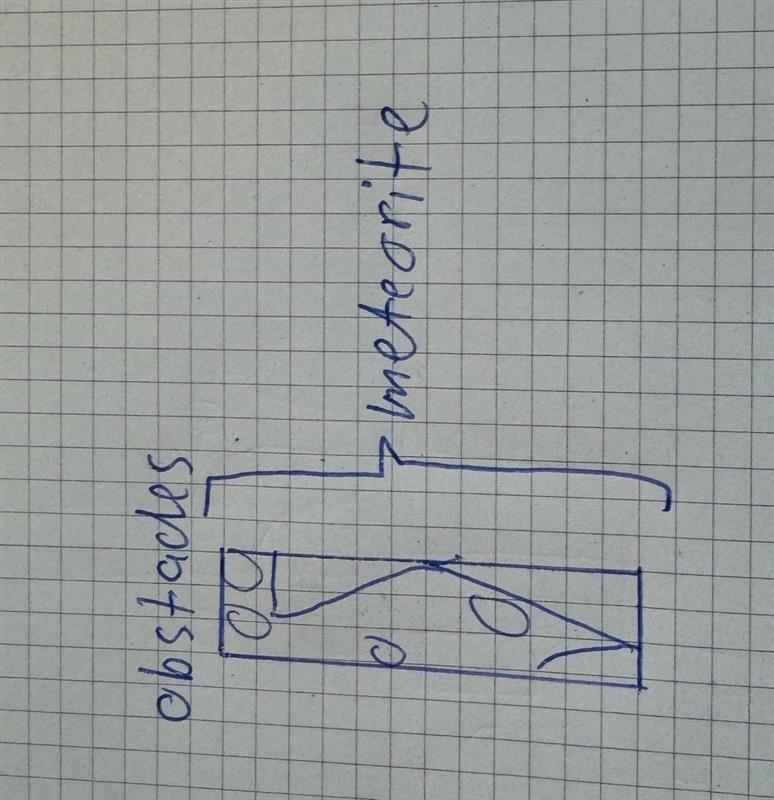 obstacles
meteorite